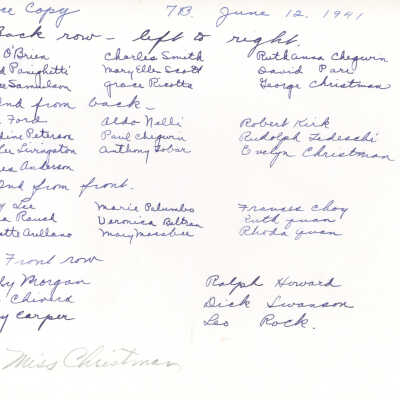 ce Copy 7B. June 12, 1941
Back row - left to right.
O'Brien Charles Smith Ruthanna Chegwin
d Panghetti Mary Ellen Scott David Parr
ce Samuelson Grace Picotte George Christman
2nd from back -
Ford Aldo Nelli Robert Kirk
dine Peterson Paul Chegwin Rudolph Tedeschi
Lee Livingston Anthony Tobar Evelyn Christman
es Anderson
2nd from front.
y Lee Marie Palumbo Frances Choy
a Rauch Veronica Beltran Ruth Yuan
ette Arellano Mary Massbee Rhoda Yuan
Front row
ly Morgan Ralph Howard
Chivard Dick Swanson
y Carper Leo Rock.
Miss Christman